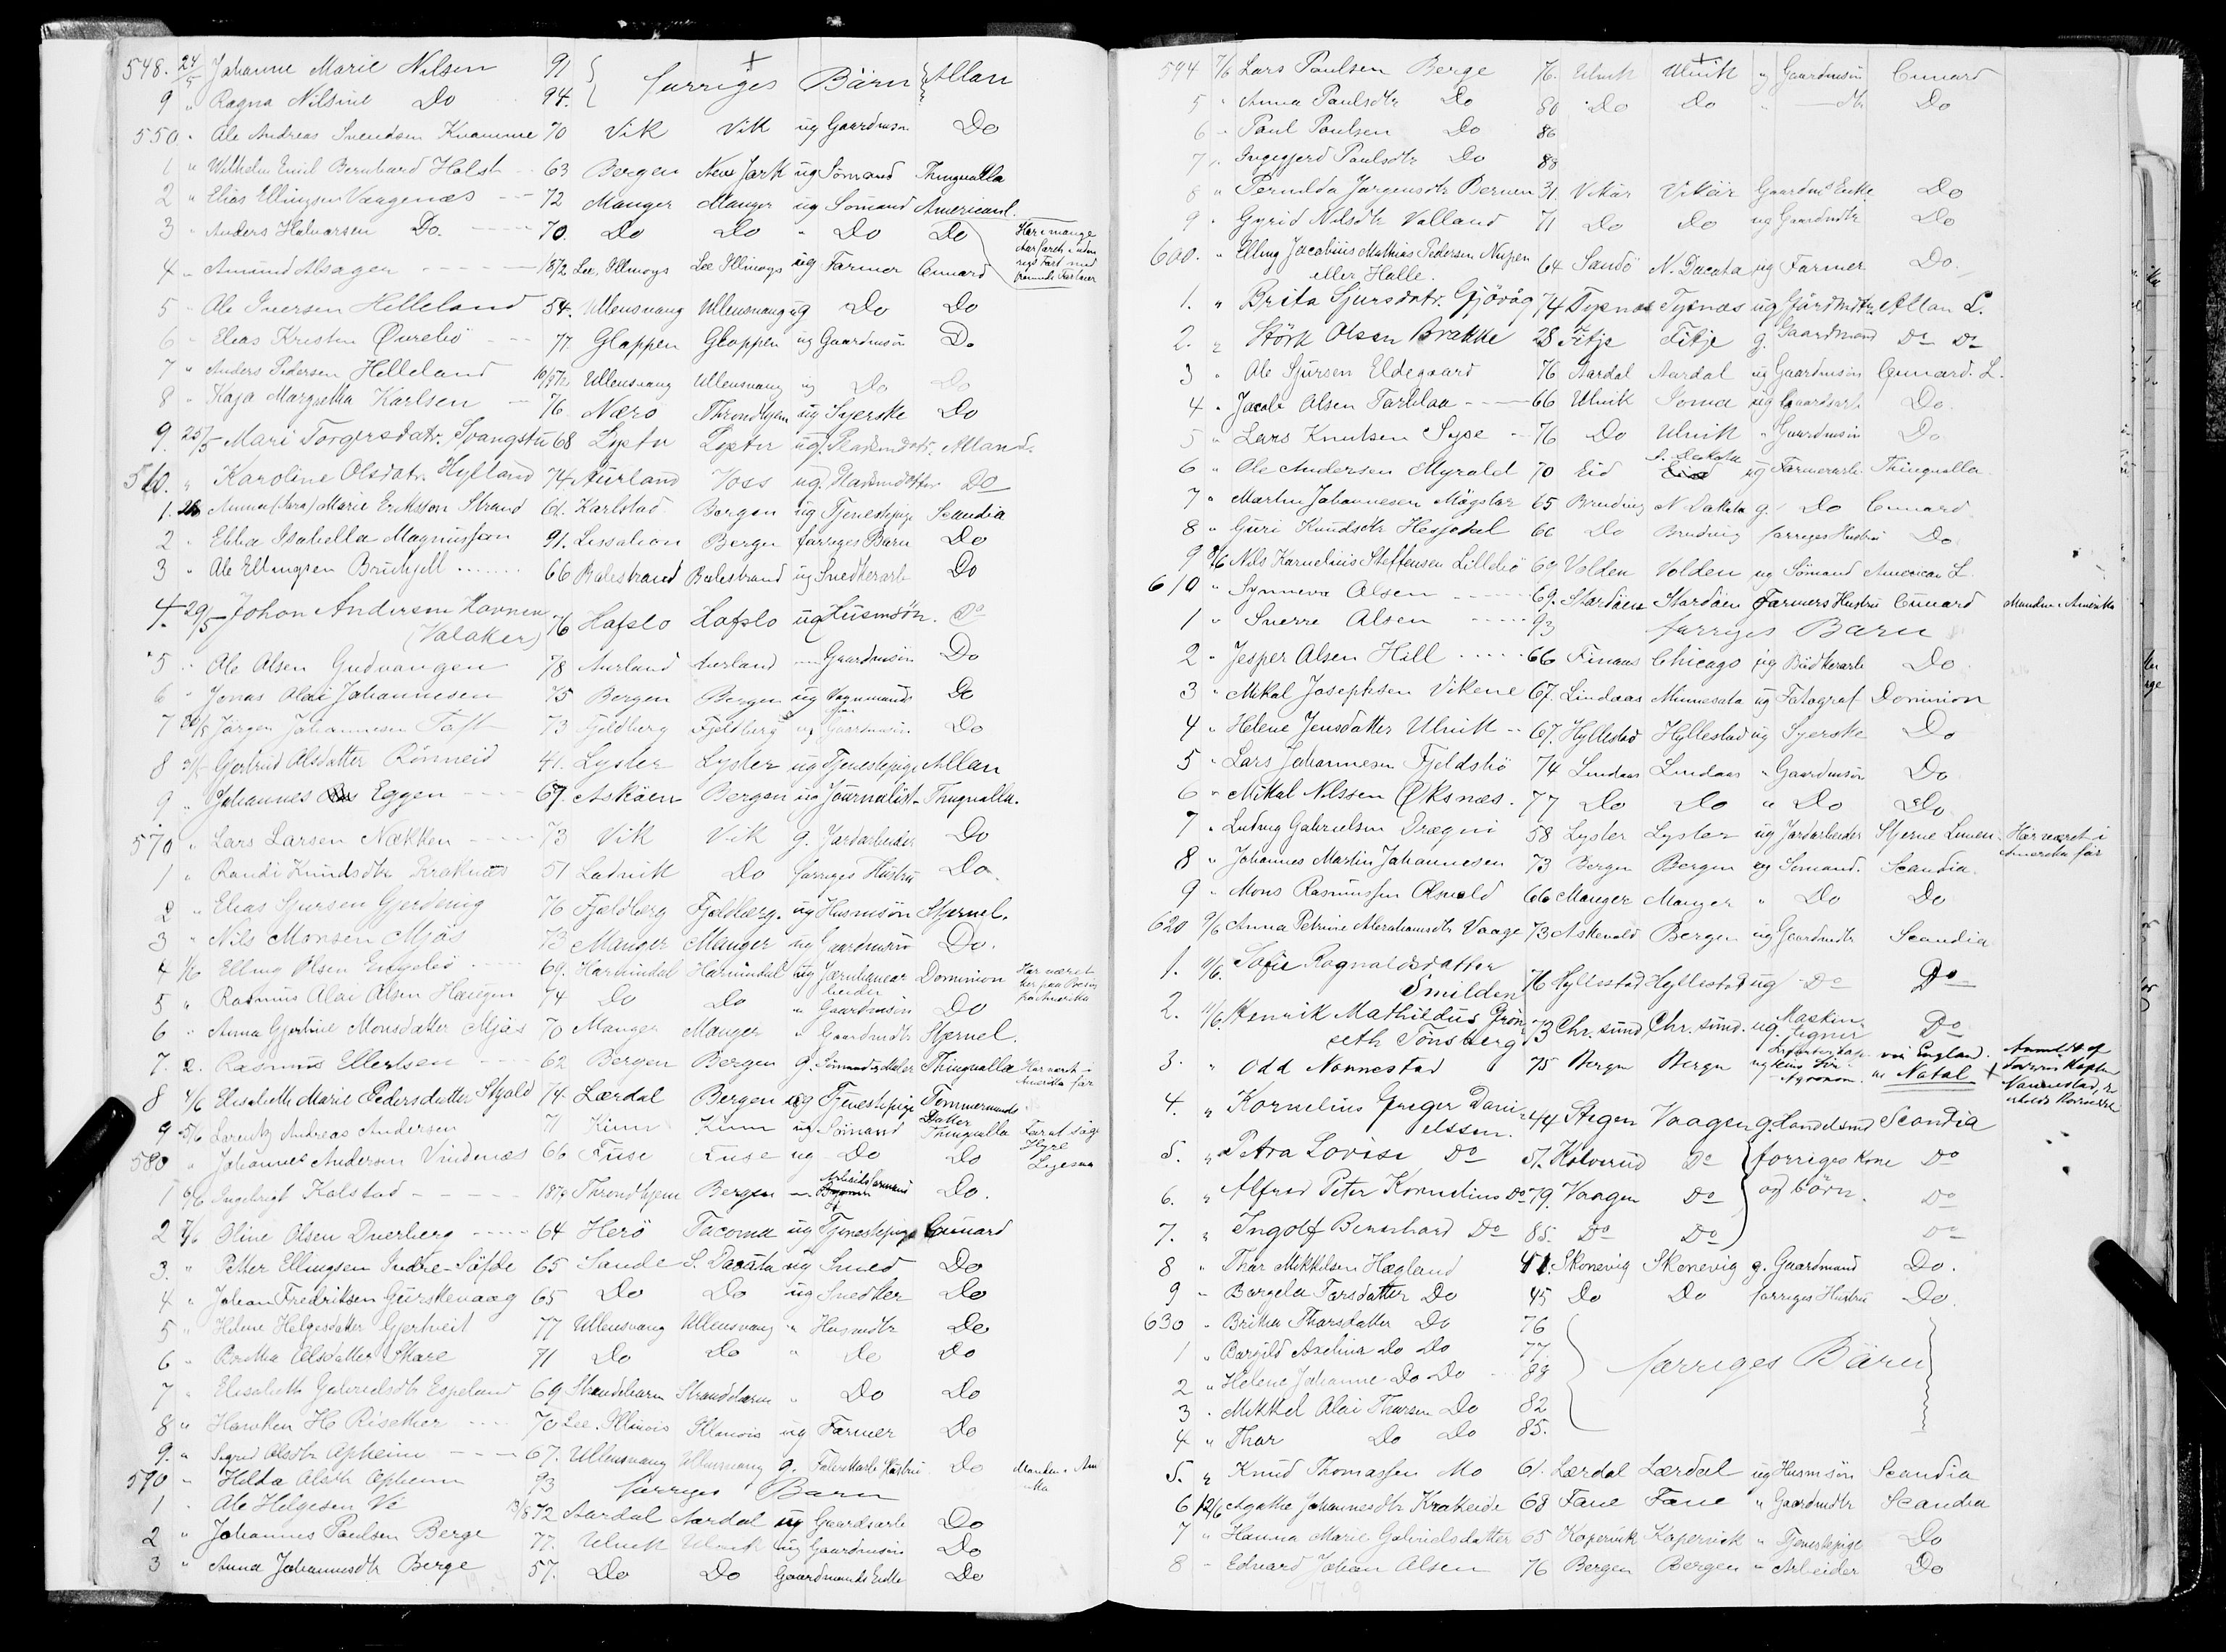 548. 24/5 Johanne Marie Nilsen 91 forriges Börn Allan
9 " Ragna Nilsine Do 94.
550. " Ole Andreas Svendsen Kvamme 70 Vik Vik ug Gaardmsøn Do
1 " Wilhelm Emil Bernhard Holst 63 Bergen New York ug Sömand Thingvalla
2 " Elias Ellingsen Vaagenæs 72 Manger Manger ug Sömand Americanl.
3 " Anders Halvorsen Do. 70. Do Do " Do Do Har i mange
4 " Amund Alsager 18/2 Lee Illinoys Lee Illinoys ug Farmer Cunard
5 " Ole Iversen Helleland 54. Ullensvang Ullensvang ug Do Do
6 " Elias Kristen Øvrebö 77 Gloppen Gloppen ug Gaardmsön Do
7 " Anders Pedersen Helleland Ullensvang Ullensvang ug Do Do
8 " Kaja Margretha Karlsen 76. Nærö Throndhjem ug Syerske Do
9. 25/5 Mari Torgersdatr. Svangstu 68 Lyster Lyster ug. Allanl.
560. " Karoline Olsdatr. Hylland 74 Aurland Voss ug. Do
1. 26 Anna Marie Eriksson Strand 61. Karlstad Bergen ug Tjenestepige Scandia
2 " Ebba Isabella Magnusson 91. Bergen forriges Barn Do
3 " Ole Ellingsen 66 Balestrand Balestrand ug Snedkerarb Do
4. 29/5 Johan Andersen Havnen 76 Hafslo Hafslo ug Husmsön. Do
(Valaker)
5 " Ole Olsen Gudvangen 78 Aurland Aurland Gaardmsön Do
6 " Jonas Olai Johannesen 75 Bergen Bergen ug Do
7 30/5 Jörgen Johannesen Toft 73 Fjeldberg Fjeldberg ug Gaardmsön Do
8 31/5 Gjertrud Olsdatter Rönneid 41. Lyster Lyster ug Tjenestepige Allan
9 " Johannes Eggen 67. Askøen Bergen ug Journalist Thingvalla.
570 " Lars Larsen Nækken 73 Vik Vik g. Jordarbeider Do
1 " Randi Knudsdtr Kraknæs 51 Ladvik Do forriges Hustru Do.
2 " Elias Sjursen Gjerdevig 76 Fjeldberg Fjeldberg. ug Husmsön Stjernel.
3 " Nils Monsen Mjös 73 Manger Manger ug Gaardmsøn Do.
4 1/6 Elling Olsen Engebö 69. Hornindal Hornindal ug Dominion Har været
5 " Rasmus Olai Olsen Haugen 74 Do Do " Gaardmsön Do fra Amerika
6 " Anna Gjertine Monsdatter Mjös 70 Manger Manger " Gaardmdtr Stjernel.
7. 2. Rasmus Ellertsen 62 Bergen Bergen g. Thingvalla Har været i
Amerika før
8 4/6 Elisabeth Marie Pedersdatter Skjold 74. Lærdal Bergen ug Tjenestepige Tømmermands
Datter
9 5/6 Lorentz Andreas Andersen 71 Kinn Kinn ug Sömand Thingvalla
580 " Johannes Andersen Vindenæs 66 Fuse Fuse ug Do Do
1 6/6 Ingebrigt Kolstad Throndhjem Bergen Do.
2 7/6 Oline Olsen Dverberg 64 Herö Tacoma ug Tjenestepige Cunard
3. " Petter Ellingsen Indre-Söfde 65 Sande S. Dacota ug Smed Do
4 " Johan Fredriksen Gurskevaag 65 Do Do ug Snedker Do
5 " Helene Helgesdatter Gjertveit 77 Ullensvang Ullensvang " Husmdtr Do
6 " Borttha Olsdatter Skare 71 Do Do " Do Do
7 " Elisabeth Gabrielsdtr Espeland 69 Strandebarm Strandebarm " Do Do
8 " Haaken H. Risether 70 Lee. Illinois Illinois ug Farmer Do
9. " Sigrid Olsdtr Opheim 67. Ullensvang Ullensvang g. Do Manden i Am
590 " Hilda Olsdtr Opheim 93 forriges Barn
1 " Ole Helgesen Ve 13/8 72 Aardal Aardal ug Gaardsarb Do
2 " Johannes Paulsen Berge 77. Ulvik Ulvik ug Gaardmsön Do
3 " Anna Johannesdtr Berge 57. Do Do Gaardmands Enke Do
594 7/6 Lars Paulsen Berge 76. Ulvik Ulvik ug Gaardmsön Cunard
5 " Anna Paulsdtr Do 80 Do Do " dtr Do
6 " Paul Paulsen Do 86
7 " Ingegjerd Paulsdtr Do 88
8 " Pernilda Jørgensdtr Berven 31. Vikör Vikör Gaardms Enke Do
9 " Gyrid Nilsdtr Valland 71 Do Do ug Gaardmdtr Do
600. " Elling Jacobius Mathias Pedersen Nupen 64 Sandö N. Dacota ug Farmer Do.
eller Halle.
1. " Brita Sjursdatr. Gjövåg 74 Tysnæs Tysnæs ug Allan L.
2. " Störk Olsen Brekke 28 Fitje Fitje g. Gaardmand Do Do
3 " Ole Sjursen Eldegaard 76 Aardal Aardal ug Gaardmsön Cunard. L.
4 " Jacob Olsen Torblaa 66 Ulvik Ioma ug Gaardsarb Do.
5 " Lars Knutsen Syse 76 Do Ulvik " Gaardmsön Do
6 " Ole Andersen Myrold 70 Eid N. Dakota ug Farmerarb Thingvalla
7 " Martin Johannesen Mögster 65 Bruvig N Dakota g. Do Cunard
8 " Guri Knudsdtr Hesjedal 66 Do Bruvig forriges Hustru Do
9 8/6 Nils Kornelius Steffensen Lillebö 69 Volden Volden ug Sömand American L
610 " Synneva Olsen 69. Stordöen Stordöen Farmers Hustru Cunard Manden i Amerika
1 " Sverre Olsen 93 forriges Barn
2 " Jesper Olsen Hill 66 Finaas Chicago ug Bödkerarb Do
3 " Mikal Josephsen Vikene 67. Lindaas Minnesota ug Fotograf Dominion
4 " Helene Jensdatter Ulvik 67. Hyllestad Hyllestad ug Syerske Do
5 " Lars Johannesen Fjeldsbö 74 Lindaas Lindaas " Gaardmsön Do
6 " Mikal Nilssen Øksnæs. 77 Do Do " Do Do
7 " Ludvig Gabrielsen Drægni 58 Lyster Lyster ug Jordarbeider Stjerne Linien Har været i
Amerika før
8 " Johannes Martin Johannesen 73 Bergen Bergen ug Sömand. Scandia.
9 " Mons Rasmussen Alsvold 66 Manger Manger " Do Do
620 9/6 Anna Petrine Abrahamsdtr Vaage 73 Askevold Bergen ug Gaardmdtr Scandia
1. 11/6. Sofie Ragnaldsdatter
Smilden 76 Hyllestad Hyllestad ug Do Do
2. 11/6 Henrik Mathildus Grön
seth Tönsberg 73 Chr. sund Chr. sund. ug. Maskin Do
3. " Odd Nonnestad 75 Bergen Bergen via England.
Agronom. Natal
4. " Kornelius Greger Dani
elssen. 44 Stegen Vaagen g. Handelsmd Scandia
5. " Petra Lovise Do 51. Do forriges Kone Do
6. " Alfred Peter Kornelius Do 79. Vaagen Do og börn. Do
7. " Ingolf Bernhard Do 85. Do Do Do
8 " Thor Mikkelsen Hægland 41. Skonevig Skonevig g. Gaardmand Do.
9 " Borgela Torsdatter Do 45 Do Do forriges Hustru Do.
630 " Britha Thorsdatter Do 76
1 " Borgild Axelina Do Do 77 forriges Börn
2 " Helene Johanne Do Do 88
3 " Mikkel Olai Thorsen Do 82
4 " Thor Do Do 85.
5. " Knud Thomassen Mo 61. Lærdal Lærdal ug Husmsön Scandia
6 12/6 Agathe Johannesdtr Krokeide 68 Fane Fane " Gaardmdtr Scandia
7 " Hanna Marie Gabrielsdatter 65 Kopervik Kopervik " Tjenestepige Do
8 " Edvard Johan Olsen 76 Bergen Bergen " Arbeider Do